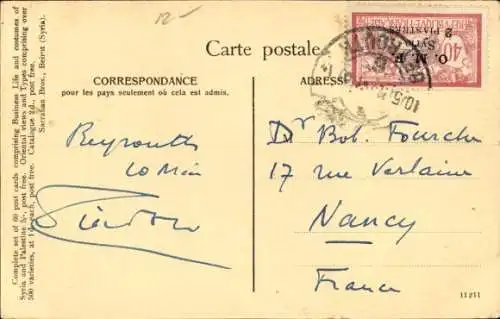 12-
Carte postale
CORRESPONDANCE
pour les pays seulement où cela est admis.
ADRESSE
O. M. F.
Syrie
2
PIASTRES
40
BEYROUTH
10/5
Beyrouth
10 Mai
Dr Bob. Fourche
17 rue Verlaine
Nancy
France
11211
Complete set of 60 post cards comprising Business Life and costumes of
Syria and Palestine 5/-, post free. Oriental views and Types comprising over
500 varieties, at 1d. each, post free. Catalogue 2d., post free.
Sarrafian Bros., Beirut (Syria).